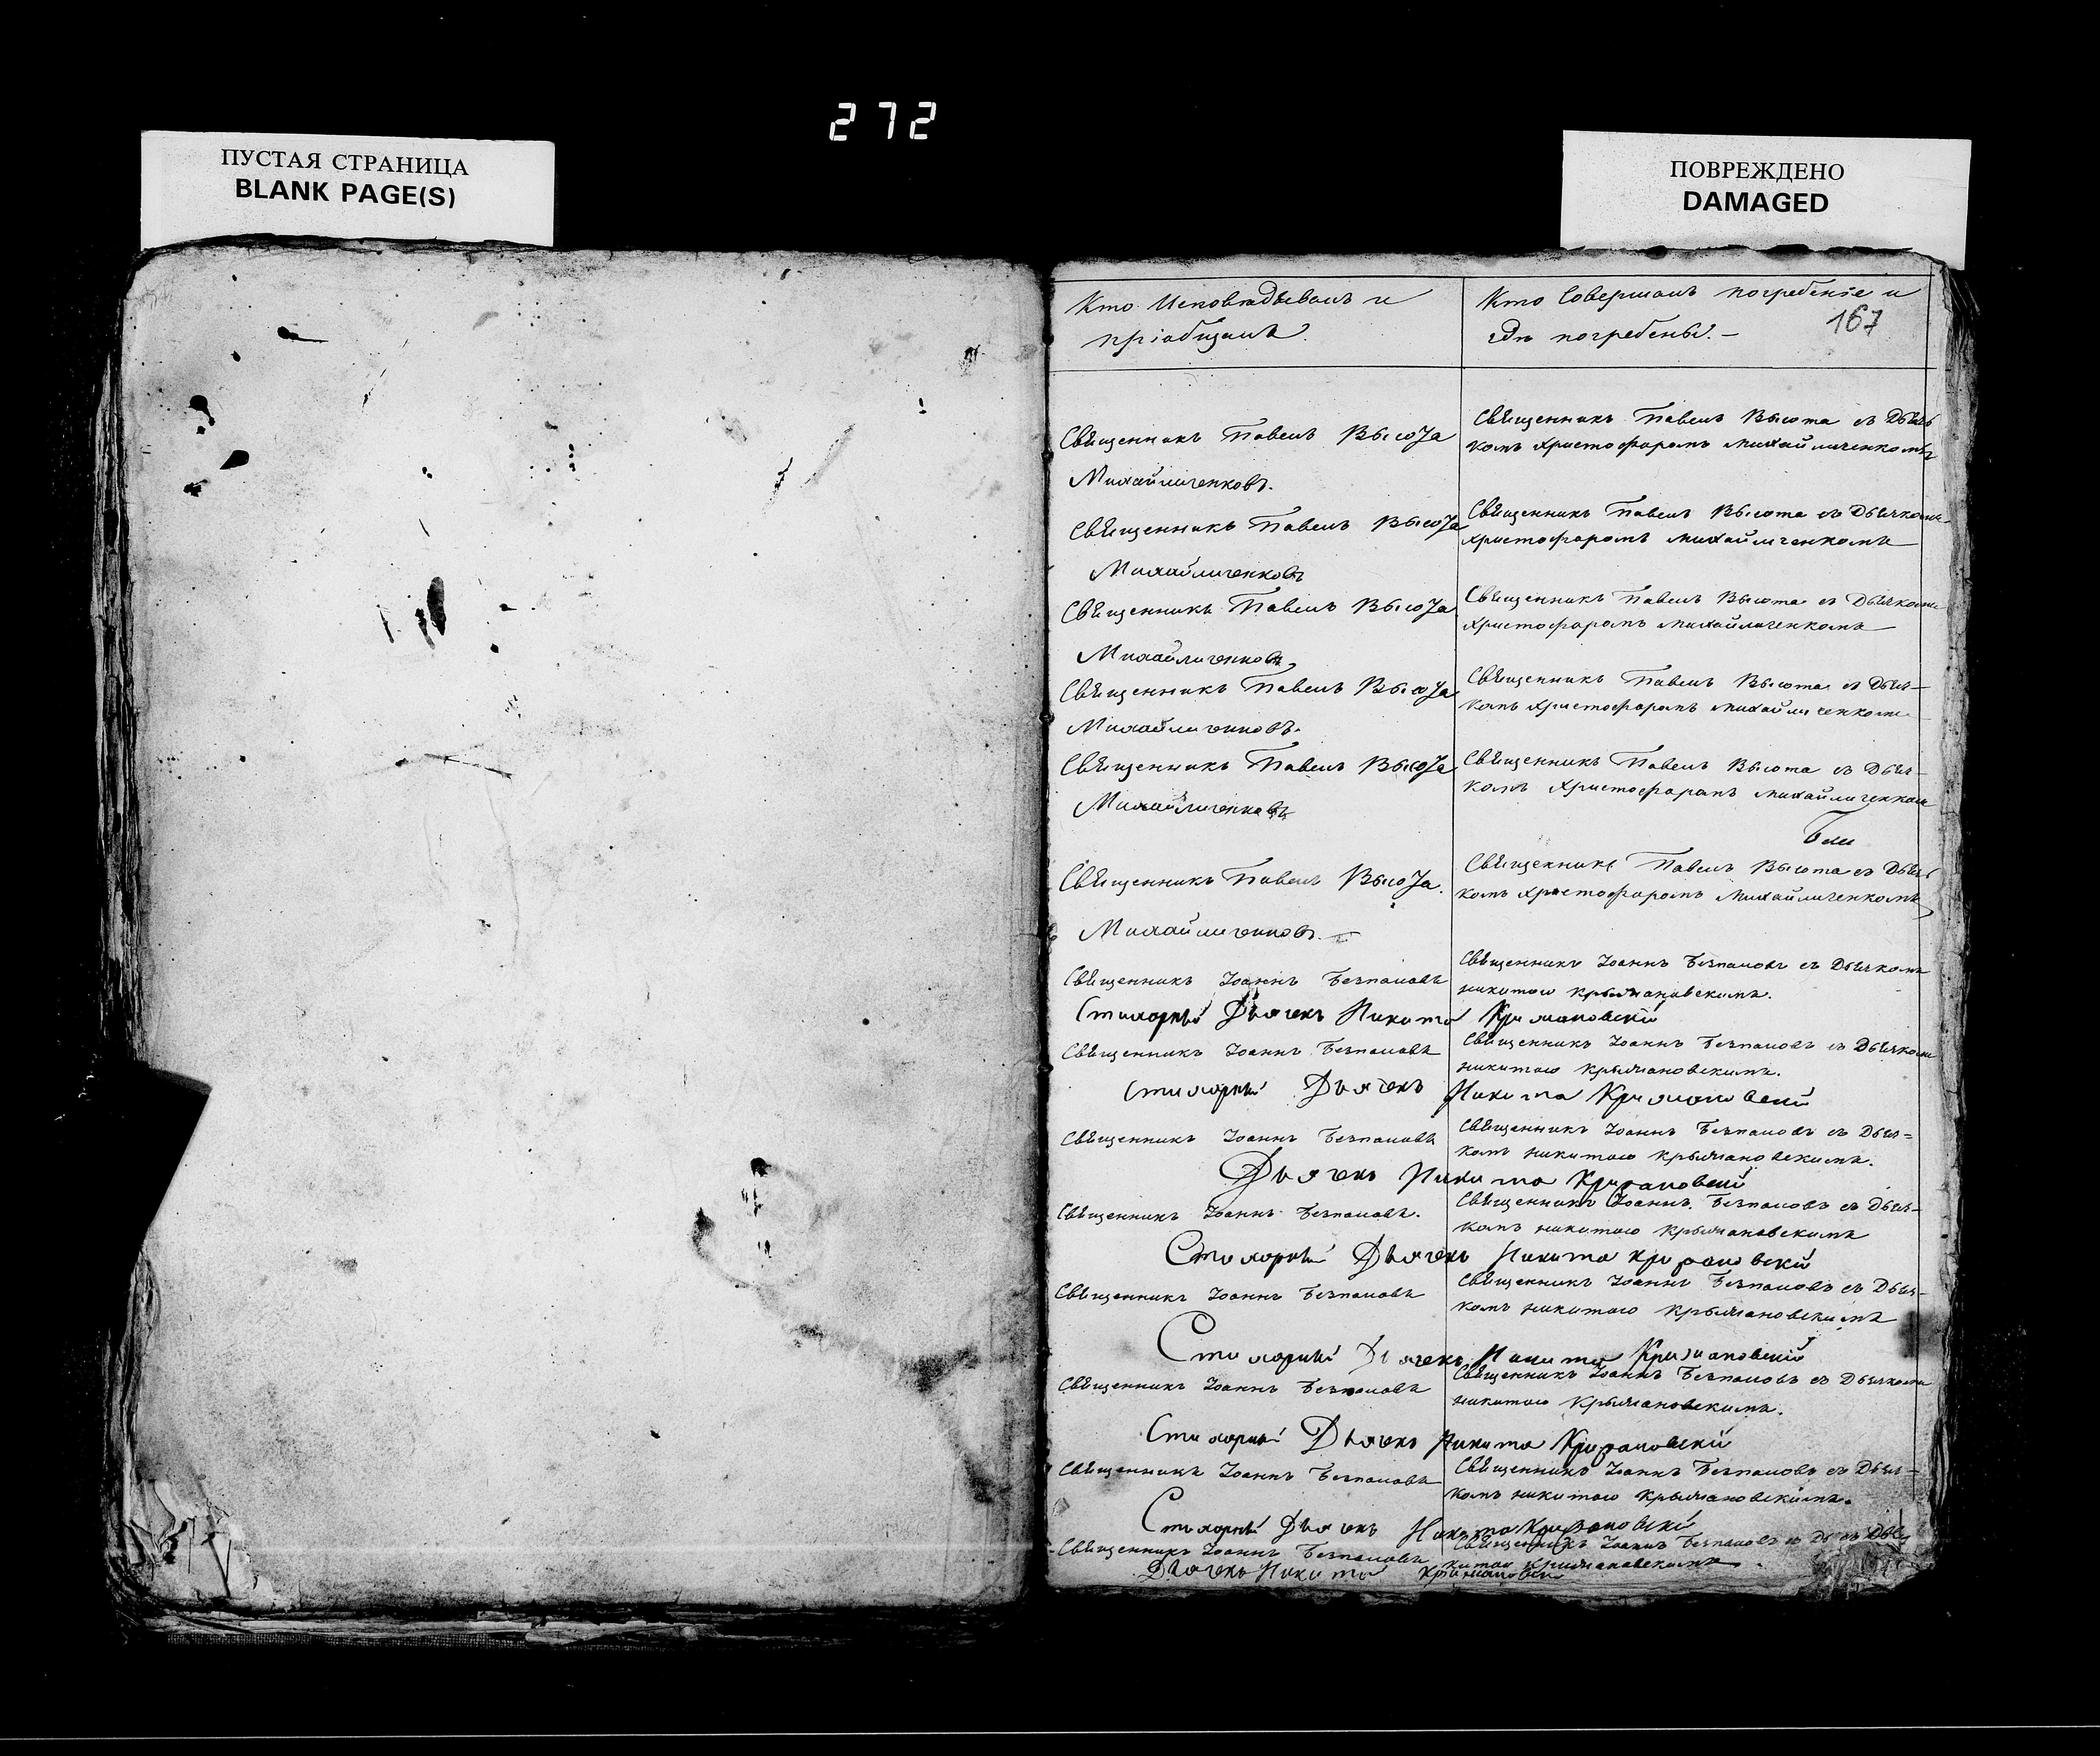 272
ПУСТАЯ СТРАНИЦА
BLANK PAGE(S)
ПОВРЕЖДЕНО
DAMAGED
Кто Исповѣдывалъ и
пріобщалъ.
Кто Совершалъ погребеніе и
гдѣ погребены. –
167
Священникъ Павелъ Высота
Михайличенковъ.
Священникъ Павелъ Высота съ Дьяч
комъ Христофоромъ Михайличенкомъ
Священникъ Павелъ Высота
Михайличенковъ
Священникъ Павелъ Высота съ Дьячкомъ
Христофоромъ Михайличенкомъ
Священникъ Павелъ Высота
Михайличенковъ
Священникъ Павелъ Высота съ Дьячкомъ
Христофоромъ Михайличенкомъ
Священникъ Павелъ Высота
Михайличенковъ.
Священникъ Павелъ Высота съ Дьяч–
комъ Христофоромъ Михайличенкомъ
Священникъ Павелъ Высота
Михайличенковъ
Священникъ Павелъ Высота съ Дьяч–
комъ Христофоромъ Михайличенком
Священникъ Павелъ Высота.
Михайличенковъ.
Священникъ Павелъ Высота съ Дьяч
комъ Христофоромъ Михайличенкомъ
Священникъ Іоаннъ Безпаловъ
Священникъ Іоаннъ Безпаловъ съ Дьячкомъ
никитою крыжановскимъ.
Стихарный Дьячекъ Никита Крижановскій
Священникъ Іоаннъ Безпаловъ
Священникъ Іоаннъ Безпаловъ съ Дьячкомъ
никитою крыжановскимъ.
Стихарный Дьячекъ Никита Крижановскій
Священникъ Іоаннъ Безпаловъ
Священникъ Іоаннъ Безпаловъ съ Дьяч=
комъ никитою крыжановскимъ.
Дьячекъ Никита Крижановскій
Священникъ Іоаннъ Безпаловъ.
Священникъ Іоаннъ Безпаловъ съ Дьяч–
комъ никитою крыжановскимъ
Стихарный Дьячекъ Никита крижановскій
Священникъ Іоаннъ Безпаловъ
Священникъ Іоаннъ Безпаловъ съ Дьяч–
комъ никитою крыжановскимъ
Стихарный Дьячекъ Никита Крижановскій
Священникъ Іоаннъ Безпаловъ
Священникъ Іоаннъ Безпаловъ съ Дьячкомъ
никитою крыжановскимъ.
Стихарный Дьячекъ Никита Крижановскій
Священникъ Іоаннъ Безпаловъ
Священникъ Іоаннъ Безпаловъ съ Дьяч–
комъ никитою крыжановскимъ.
Стихарный Дьячекъ Никита Крижановскій
Священникъ Іоаннъ Безпаловъ
Священникъ Іоаннъ Безпаловъ
китою крыжановскимъ
Дьячекъ Никита Крижановскій